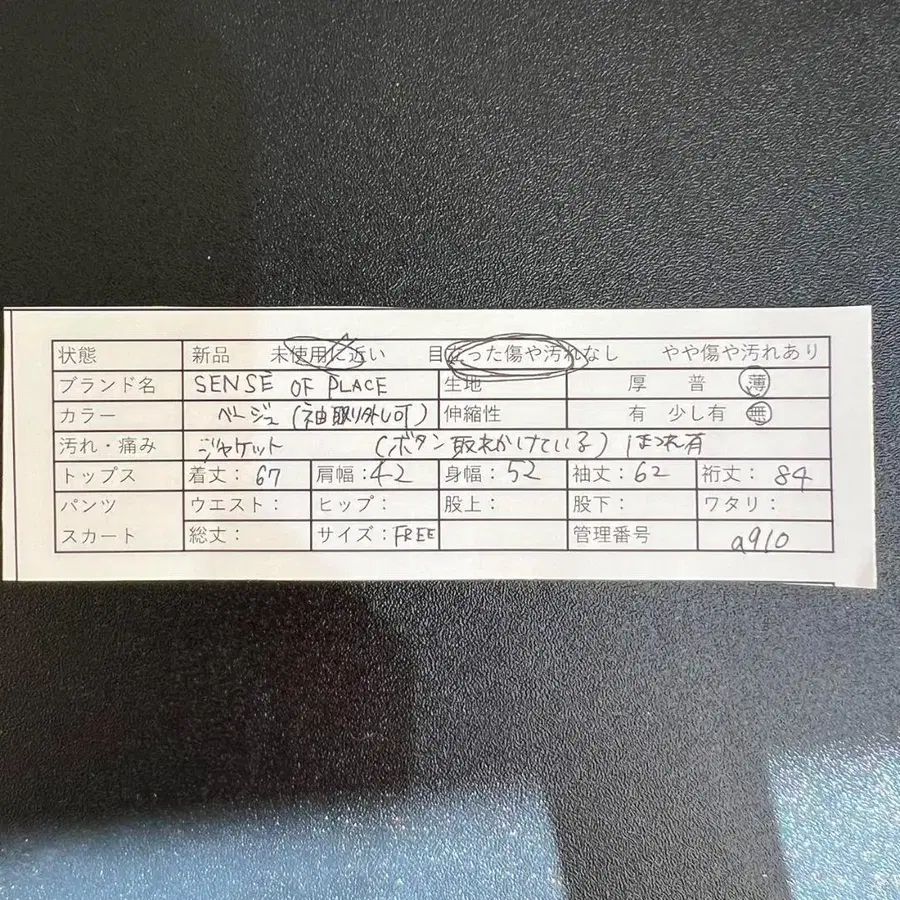 状態 新品 未使用に近い 目立った傷や汚れなし やや傷や汚れあり
ブランド名 SENSE OF PLACE 生地 厚 普 薄
カラー ベージュ(袖取り外し可) 伸縮性 有 少し有 無
汚れ・痛み ジャケット (ボタン取れかけている) ほつれ有
トップス 着丈:67 肩幅:42 身幅:52 袖丈:62 裄丈:84
パンツ ウエスト: ヒップ: 股上: 股下: ワタリ:
スカート 総丈: サイズ:FREE 管理番号 a910